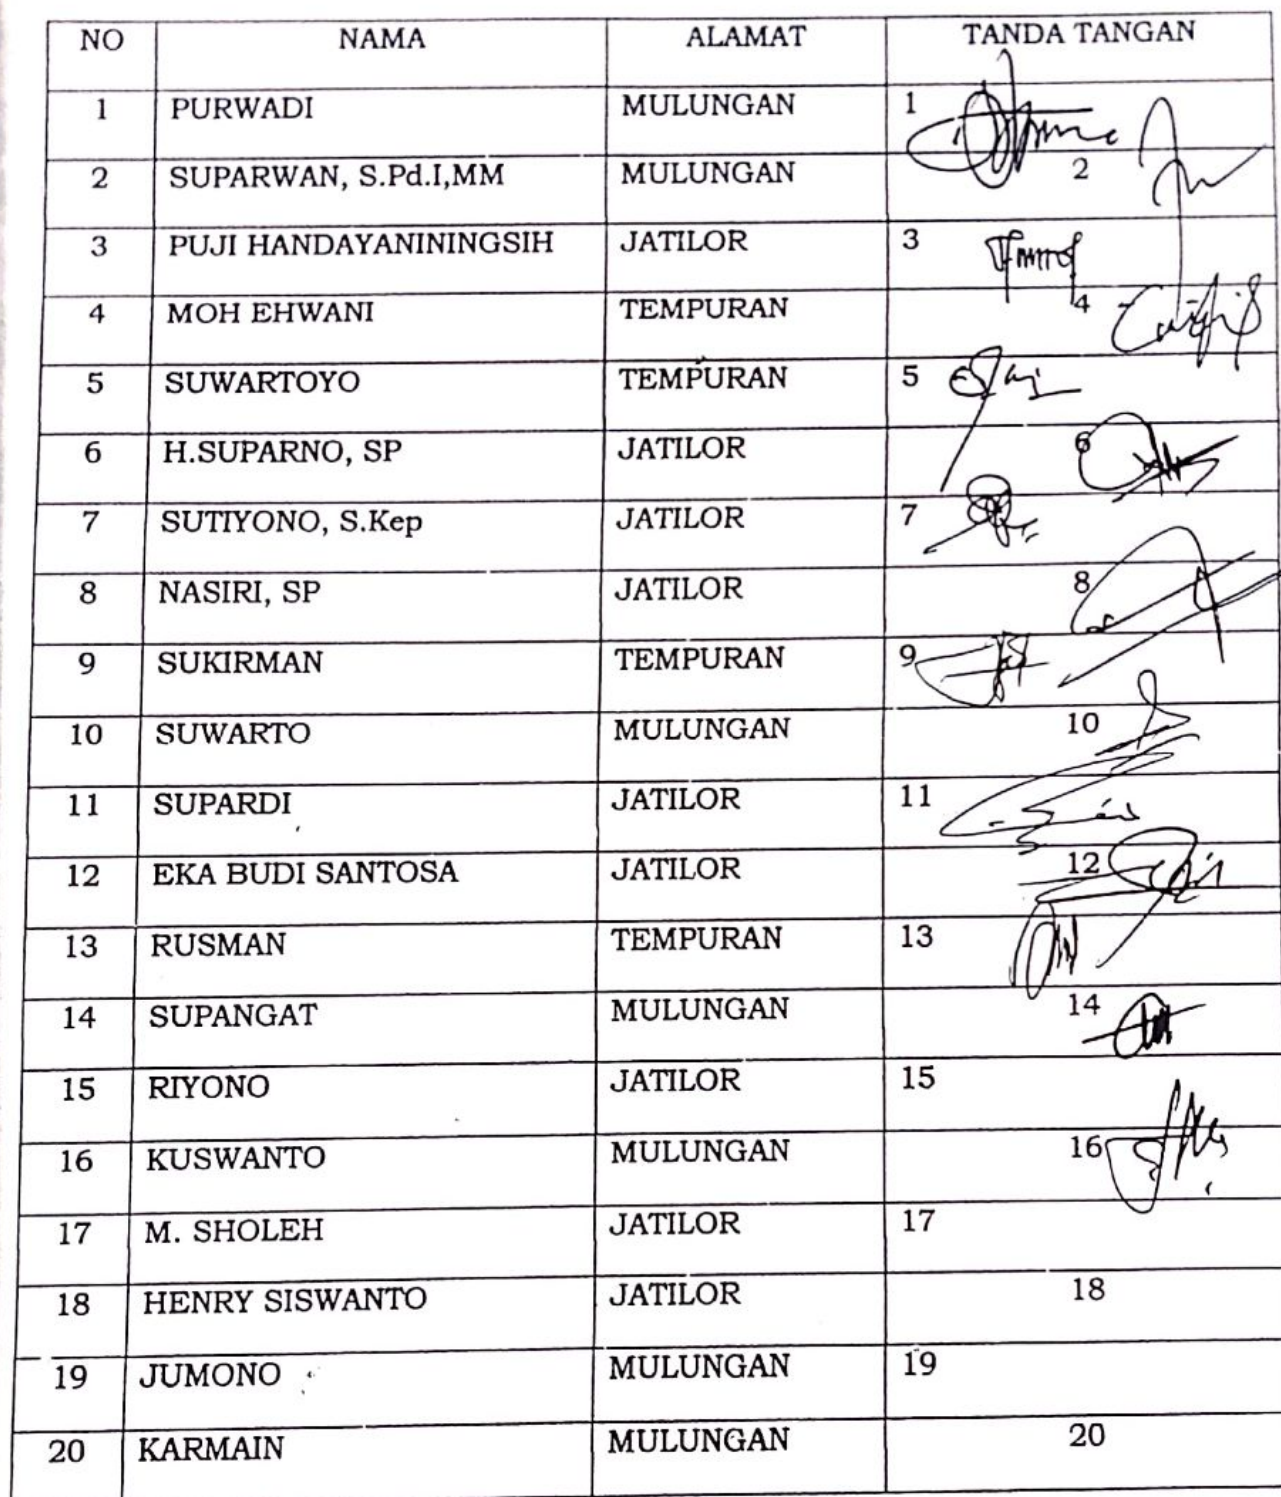 NO NAMA ALAMAT TANDA TANGAN
1 PURWADI MULUNGAN 1
2 SUPARWAN, S.Pd.I,MM MULUNGAN 2
3 PUJI HANDAYANININGSIH JATILOR 3
4 MOH EHWANI TEMPURAN 4
5 SUWARTOYO TEMPURAN 5
6 H.SUPARNO, SP JATILOR 6
7 SUTIYONO, S.Kep JATILOR 7
8 NASIRI, SP JATILOR 8
9 SUKIRMAN TEMPURAN 9
10 SUWARTO MULUNGAN 10
11 SUPARDI JATILOR 11
12 EKA BUDI SANTOSA JATILOR 12
13 RUSMAN TEMPURAN 13
14 SUPANGAT MULUNGAN 14
15 RIYONO JATILOR 15
16 KUSWANTO MULUNGAN 16
17 M. SHOLEH JATILOR 17
18 HENRY SISWANTO JATILOR 18
19 JUMONO MULUNGAN 19
20 KARMAIN MULUNGAN 20